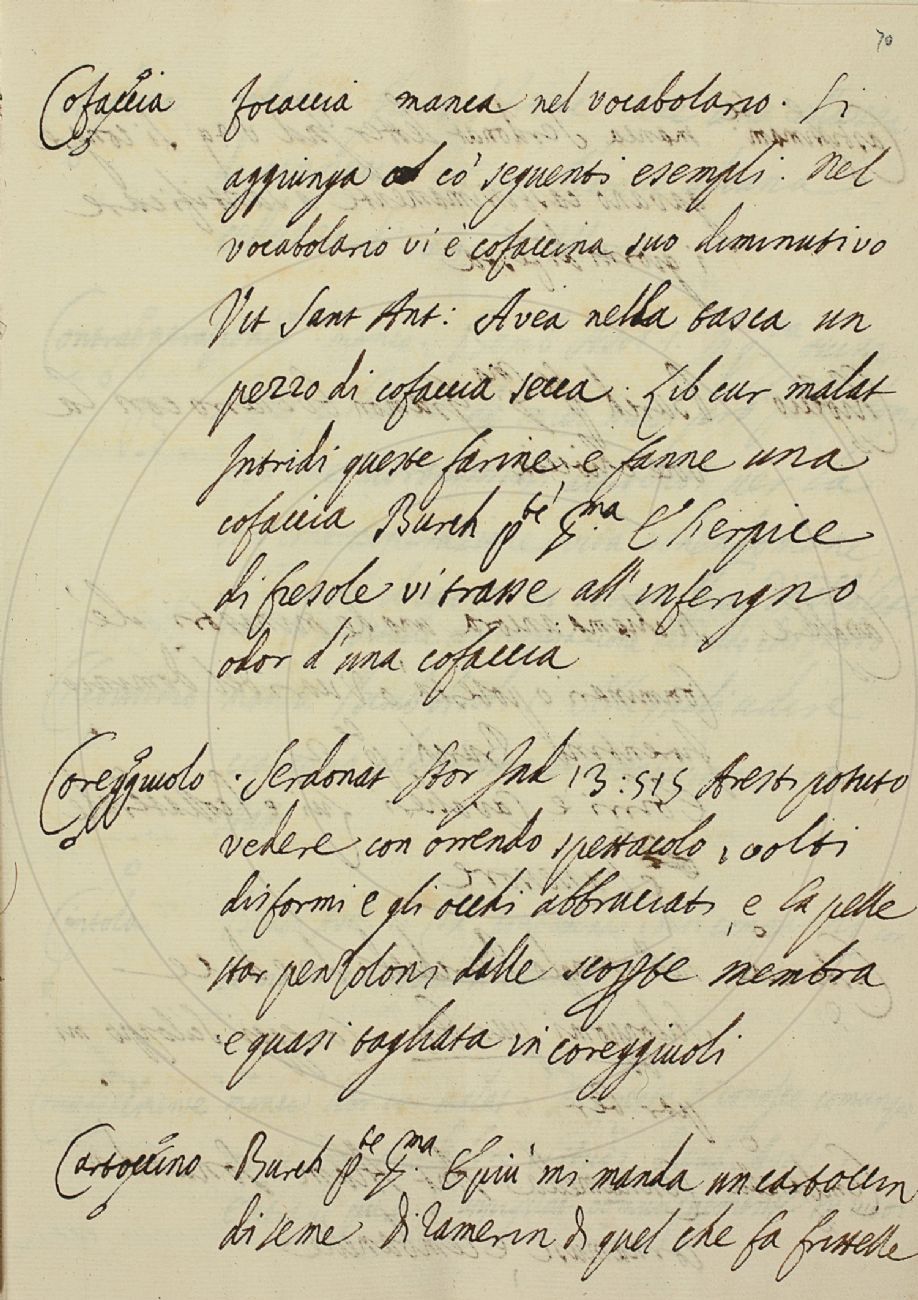 70
Cofaccia focaccia manca nel vocabolario. Si
aggiunga co' seguenti esempli. Nel
vocabolario vi è cofaccina suo diminutivo
Vit Sant Ant: Avea nella tasca un
pezzo di cofaccia secca. Lib cur malat
Intridi queste farine, e fanne una
cofaccia Burch pte pma L'herpice
di fiesole vi trasse all'inferigno
odor d'una cofaccia
Coreggiuolo. Serdonat Stor Ind 13:515 Aresti potuto
vedere con orrendo spettacolo, volti
disformi e gli occhi abbruciati, e la pelle
star penzoloni dalle scoppte membra
e quasi tagliata in coreggiuoli
Cartoccino Burch pte pma E più mi manda un cartoccin
di seme di ramerin di quel che fa frittelle